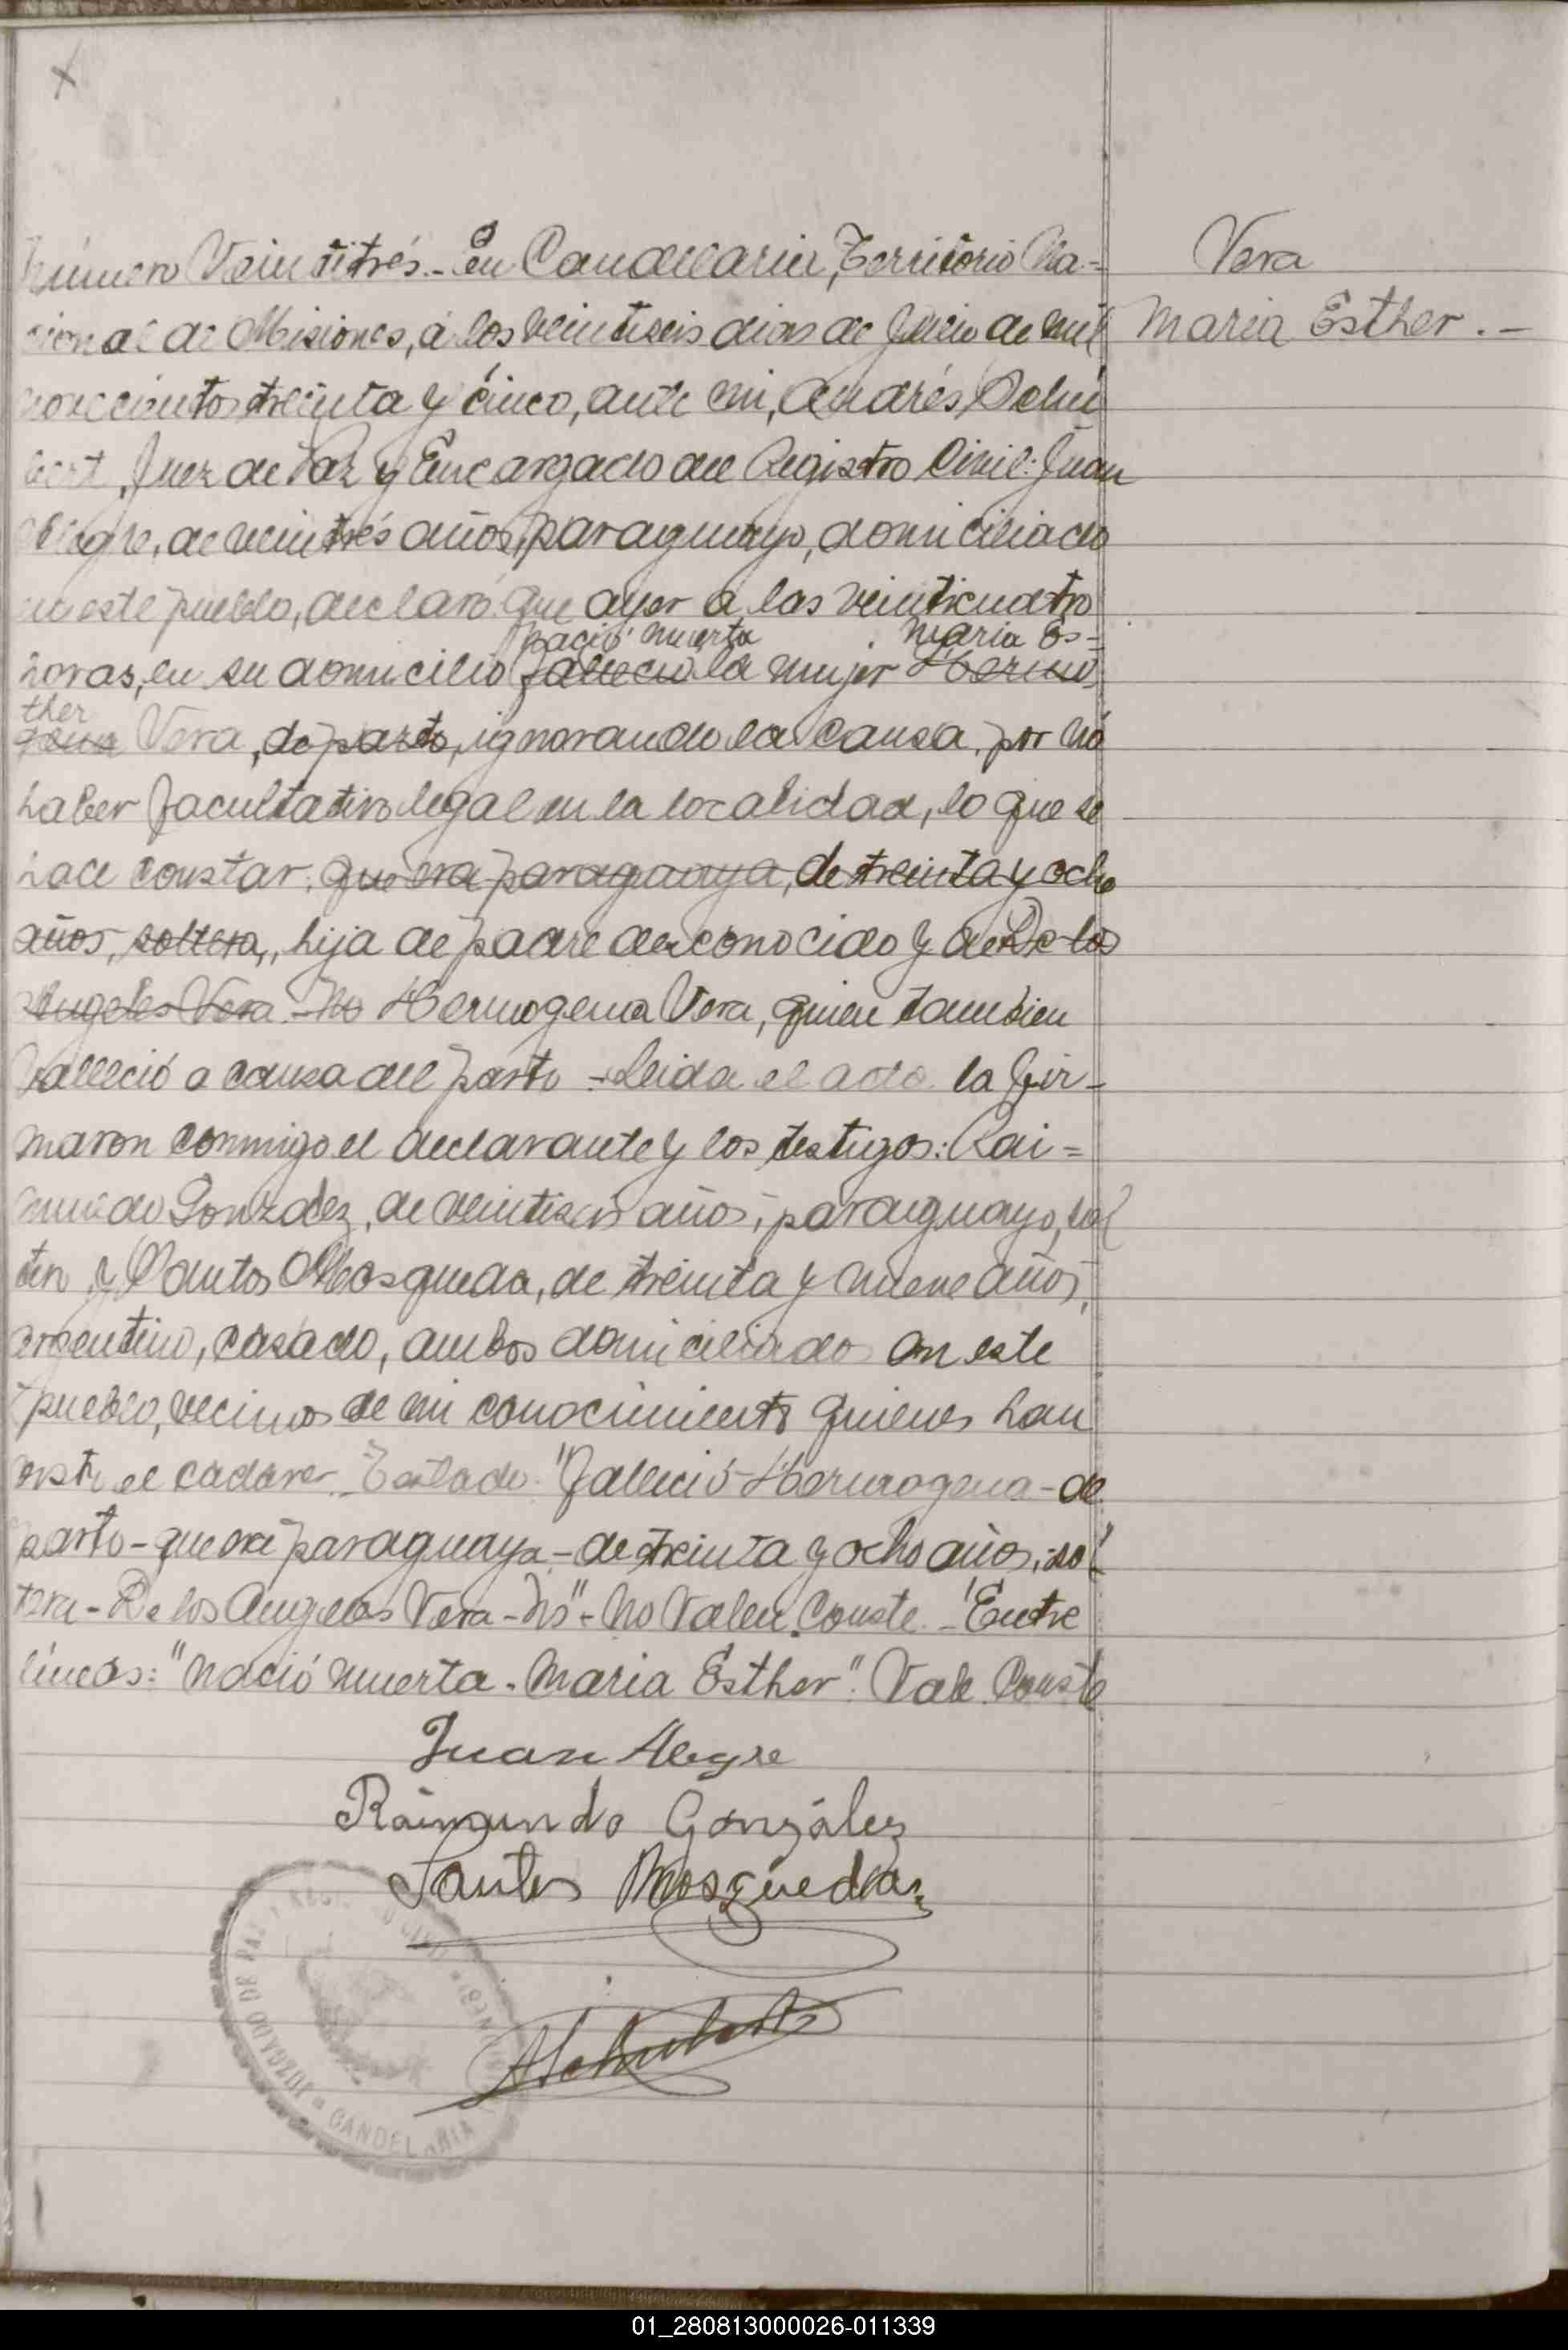 Vera
Maria Esther. -
Número Veintitrés.- En Candelaria, Territorio Na-
cional de Misiones, á los veintiseis dias de Julio de mil
novecientos treinta y cinco, ante mi, Andrés Schu
bert, Juez de Paz y Encargado del Registro Civil: Juan
Alegre, de veintrés años, paraguayo, domiciliado
en este pueblo, declaró que ayer a las veinticuatro
nació muerta Maria Es-
horas, en su domicilio falleció la mujer Hermó
ther
gena Vera, de parto, ignorando la causa, por nó
haber facultativo legal en la localidad, lo que se
hace constar; que era paraguaya, de treinta y ocho
años, soltera, hija de padre desconocido y de De los
Angeles Vera - No Hermogena Vera, quien tambien
falleció a causa del parto - Leida el acta la fir-
maron conmigo el declarante y los testigos: Rai=
mundo Gonzalez, de veintiseis años, paraguayo, sol
tero, y Santos Mosqueda, de treinta y nueve años,
argentino, casado, ambos domiciliados en este
pueblo, vecinos de mi conocimiento quienes han
visto el cadaver - Testado: "falleció - Hermogena - de
parto - que era paraguaya - de treinta y ocho años, sol
tera - De los Angeles Vera - No" - No Valen. Conste. - Entre
lineas: "nació muerta - Maria Esther". Vale Conste
Juan Alegre
Raimundo González
Santos Mosqueda
ASchubert
JUZGADO DE PAZ Y REG. CIVIL
CANDELARIA
01_280813000026-011339